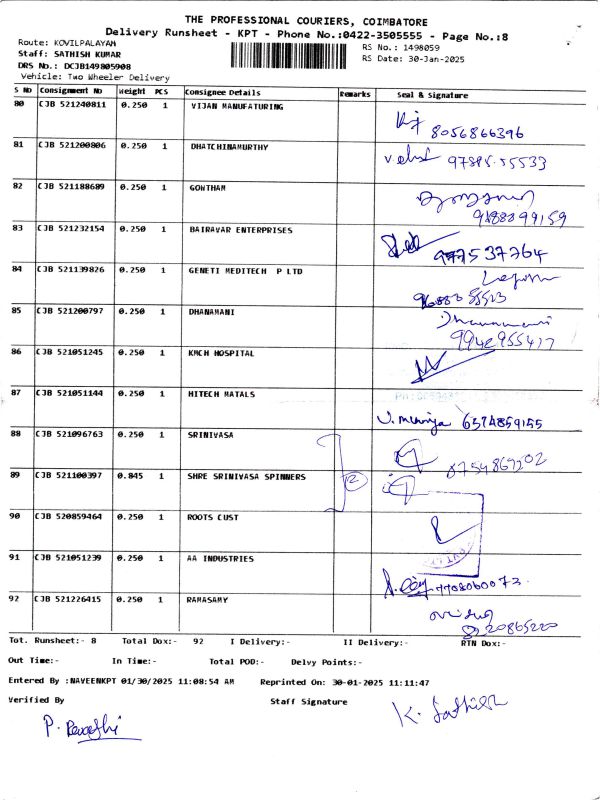 THE PROFESSIONAL COURIERS, COIMBATORE
Delivery Runsheet - KPT - Phone No.:0422-3505555 - Page No.:8
Route: KOVILPALAYAM
RS No.: 1498059
Staff: SATHISH KUMAR
RS Date: 30-Jan-2025
DRS No.: DCJB149805908
Vehicle: Two Wheeler Delivery
S No Consignment No Weight PCS Consignee Details Remarks Seal & Signature
80 CJB 521240811 0.250 1 VIJAN MANUFATURING
8056866396
81 CJB 521200806 0.250 1 DHATCHINAMURTHY
82 CJB 521188689 0.250 1 GOWTHAM
83 CJB 521232154 0.250 1 BAIRAVAR ENTERPRISES
84 CJB 521139826 0.250 1 GENETI MEDITECH P LTD
85 CJB 521200797 0.250 1 DHANAMANI
Dhanamani
9942955417
86 CJB 521051245 0.250 1 KMCH HOSPITAL
87 CJB 521051144 0.250 1 HITECH MATALS
6374859155
88 CJB 521096763 0.250 1 SRINIVASA
89 CJB 521100397 0.845 1 SHRE SRINIVASA SPINNERS
2
90 CJB 520859464 0.250 1 ROOTS CUST
91 CJB 521051239 0.250 1 AA INDUSTRIES
7708060073
92 CJB 521226415 0.250 1 RAMASAMY
Tot. Runsheet:- 8 Total Dox:- 92 I Delivery:- II Delivery:- RTN Dox:-
Out Time:- In Time:- Total POD:- Delvy Points:-
Entered By :NAVEENKPT 01/30/2025 11:08:54 AM Reprinted On: 30-01-2025 11:11:47
Verified By Staff Signature
K. Sathish